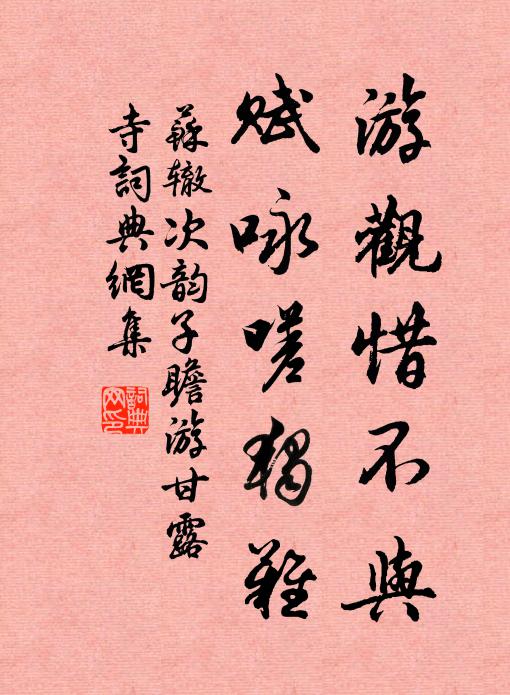 游觀惜不與
賦咏嗟獨難
蘇辙次韵子瞻游甘露
寺詞典網集
詞典网印